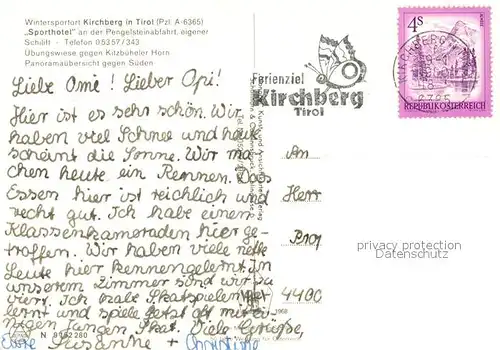 Wintersportort Kirchberg in Tirol (Pzl. A-6365)
„Sporthotel" an der Pengelsteinabfahrt, eigener
Schilift - Telefon 05357/343
Übungswiese gegen Kitzbüheler Horn
Panoramaübersicht gegen Süden
Ferienziel
Kirchberg
Tirol
4S
REPUBLIK ÖSTERREICH
Liebe Omi! Lieber Opi!
Hier ist es sehr schön. Wir
haben viel Schnee und heute
scheint die Sonne. Wir ma
chen heute ein Rennen. Das
Essen hier ist reichlich und
recht gut. Ich habe einen
Klassenkameraden hier ge-
troffen. Wir haben viele nette
Leute hier kennengelernt. In
unserem Zimmer sind wir zu
viert. Ich habe Skatspielen ge
lernt und spiele jetzt oft mit ei
nigen Jungen Skat. Viele Grüße,
Eure Susanne + Christine
An
Herr
4400
privacy protection
Datenschutz